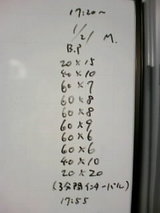 17:20~
1/21 M.
B.P
20×15
40×10
60×7
60×8
60×8
60×9
60×6
60×6
40×10
20×20
(3分間インターバル)
17:55